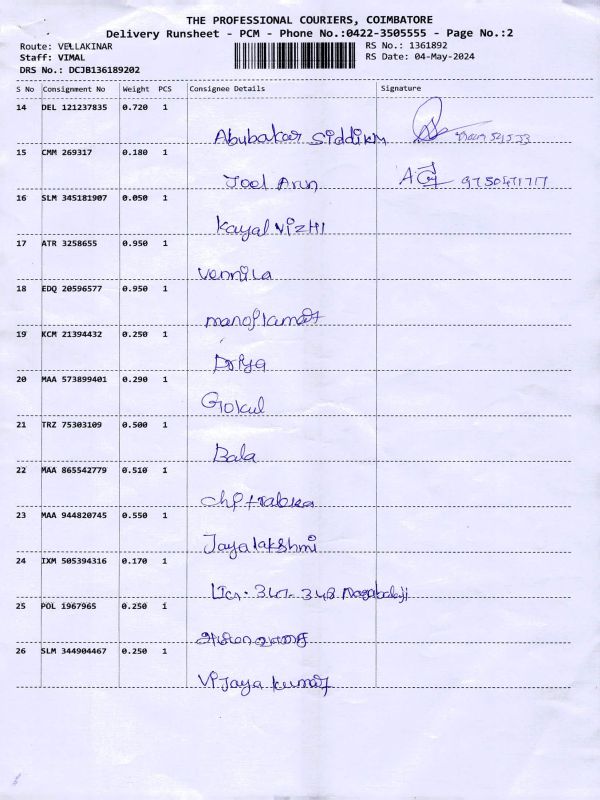 THE PROFESSIONAL COURIERS, COIMBATORE
Delivery Runsheet - PCM - Phone No.:0422-3505555 - Page No.:2
Route: VELLAKINAR
RS No.: 1361892
Staff: VIMAL
RS Date: 04-May-2024
DRS No.: DCJB136189202
S No Consignment No Weight PCS Consignee Details Signature
14 DEL 121237835 0.720 1
Abubakar Siddikm
15 CMM 269317 0.180 1
Joel Arun 9750471717
16 SLM 345181907 0.050 1
Kayal Vizhi
17 ATR 3258655 0.950 1
Vennila
18 EDQ 20596577 0.950 1
manojkumar
19 KCM 21394432 0.250 1
Priya
20 MAA 573899401 0.290 1
Gokul
21 TRZ 75303109 0.500 1
Bala
22 MAA 865542779 0.510 1
23 MAA 944820745 0.550 1
Jayalakshmi
24 IXM 505394316 0.170 1
Nagabalaji
25 POL 1967965 0.250 1
26 SLM 344904467 0.250 1
Vijaya kumar